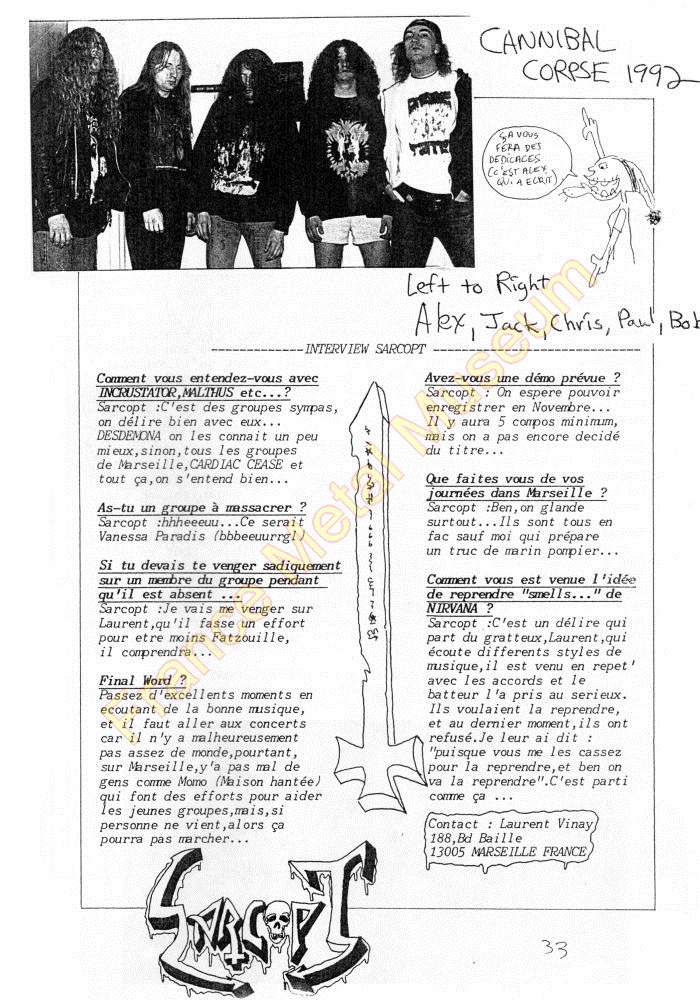 CANNIBAL
CORPSE 1992
ÇA VOUS
FERA DES
DEDICACES
(C'EST ALEX
QUI A ECRIT)
Left to Right
Alex, Jack, Chris, Paul, Bob
INTERVIEW SARCOPT
Comment vous entendez-vous avec
INCRUSTATOR,MALTHUS etc...?
Sarcopt :C'est des groupes sympas,
on délire bien avec eux...
DESDEMONA on les connait un peu
mieux,sinon,tous les groupes
de Marseille,CARDIAC CEASE et
tout ça,on s'entend bien...
As-tu un groupe à massacrer ?
Sarcopt :hhheeeuu...Ce serait
Vanessa Paradis (bbbeeuuurrgl)
Si tu devais te venger sadiquement
sur un membre du groupe pendant
qu'il est absent ...
Sarcopt :Je vais me venger sur
Laurent,qu'il fasse un effort
pour etre moins Fatzouille,
il comprendra...
Final Word ?
Passez d'excellents moments en
ecoutant de la bonne musique,
et il faut aller aux concerts
car il n'y a malheureusement
pas assez de monde,pourtant,
sur Marseille,y'a pas mal de
gens comme Momo (Maison hantée)
qui font des efforts pour aider
les jeunes groupes,mais,si
personne ne vient,alors ça
pourra pas marcher...
Avez-vous une démo prévue ?
Sarcopt : On espere pouvoir
enregistrer en Novembre...
Il y aura 5 compos minimum,
mais on a pas encore decidé
du titre...
Que faites vous de vos
journées dans Marseille ?
Sarcopt :Ben,on glande
surtout...Ils sont tous en
fac sauf moi qui prépare
un truc de marin pompier...
Comment vous est venue l'idée
de reprendre "smells..." de
NIRVANA ?
Sarcopt :C'est un délire qui
part du gratteux,Laurent,qui
écoute differents styles de
musique,il est venu en repet'
avec les accords et le
batteur l'a pris au serieux.
Ils voulaient la reprendre,
et au dernier moment,ils ont
refusé.Je leur ai dit :
"puisque vous me les cassez
pour la reprendre,et ben on
va la reprendre".C'est parti
comme ça ...
Contact : Laurent Vinay
188,Bd Baille
13005 MARSEILLE FRANCE
SARCOPT
33
France Metal Museum